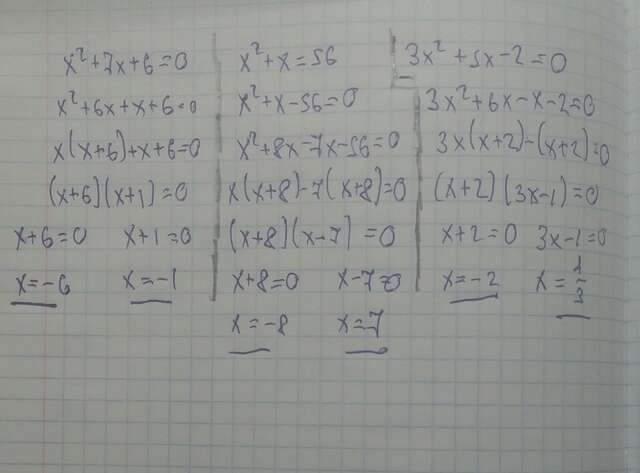 x²+7x+6=0
x²+6x+x+6=0
x(x+6)+x+6=0
(x+6)(x+1)=0
x+6=0 x+1=0
x=-6 x=-1
x²+x=56
x²+x-56=0
x²+8x-7x-56=0
x(x+8)-7(x+8)=0
(x+8)(x-7)=0
x+8=0 x-7=0
x=-8 x=7
3x²+5x-2=0
3x²+6x-x-2=0
3x(x+2)-(x+2)=0
(x+2)(3x-1)=0
x+2=0 3x-1=0
x=-2 x=1/3